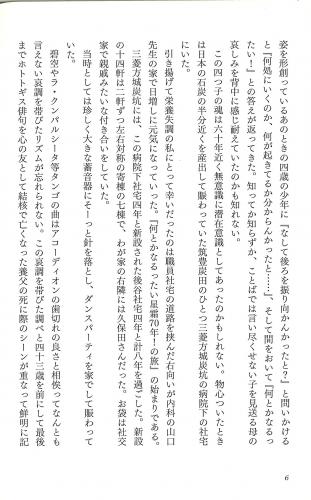 姿を形創っているあのときの四歳の少年に『なして後ろを振り向かんかったと？』と問いかける
と『何処にいくのか、何が起きてるか分からんかったと……』、そして間をおいて『何とかなるっ
たい！』との答えが返ってきた。知ってか知らずか、ことばでは言い尽くせない子を見送る母の
哀しみを背中に感じ耐えていたのかも知れない。
この四つ子の魂は六十年近く無意識に潜在意識としてあったのかもしれない。物心ついたとき
は日本の石炭の半分近くを産出して賑わっていた筑豊炭田のひとつ三菱方城炭坑の病院下の社宅
引き揚げて栄養失調の私にとって幸いだったのは職員社宅の道路を挟んだ右向いが内科の山口
先生の家で日増しに元気になっていった。『何とかなるったい星霜70年！の旅』の始まりである。
三菱方城炭坑には、この病院下社宅四年と新設された後谷社宅四年と計八年を過ごした。新設
の十四軒は二軒ずつ左右対称の寄棟の七棟で、わが家の右隣には久保田さんだった。お袋は社交
家で親戚みたいな付き合いをしていた。
当時としては珍しく大きな蓄音器にそーっと針を落とし、ダンスパーティを家でして賑わって
いた。
碧空やラ・クンパルシータ等タンゴの曲はアコーディオンの歯切れの良さと相俟ってなんとも
言えない哀調を帯びたリズムが忘れられない。この哀調を帯びた調べと四十三歳を前にして最後
までホトトギス俳句を心の友として結核で亡くなった養父の死に際のシーンが重なって鮮明に記
6